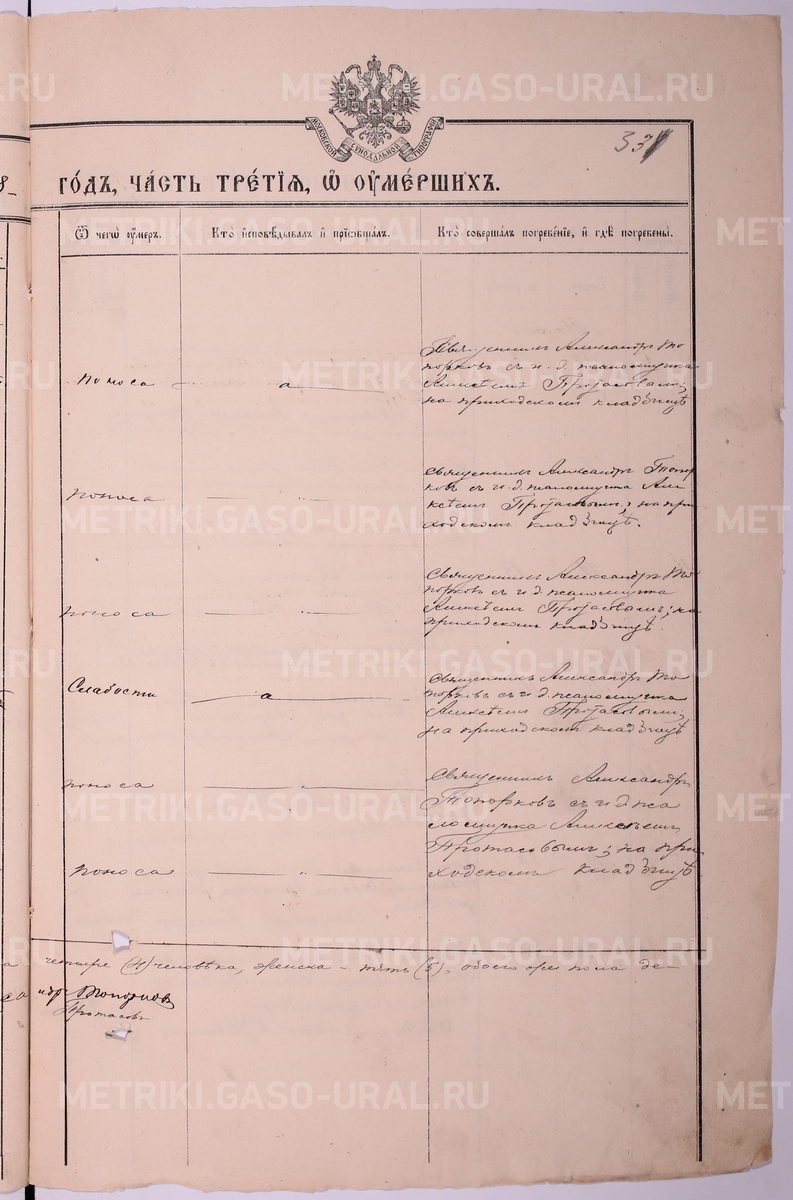 МОСКОВСКОЙ СѴНОДАЛЬНОЙ ТИПОГРАФІИ
33
го́дъ, ча́сть тре́тїѧ, ѡ҆ оу҆ме́ршихъ.
Ѿ чегѡ̀ оу҆́меръ.
Кто̀ и҆сповѣ́дывалъ и҆ прїѡбща́лъ.
Кто̀ соверша́лъ погребе́нїе, и҆ гдѣ̀ погребены̀.
Поноса
Священникъ Александръ То
порковъ съ и. д. псаломщика
Алексѣемъ Протасовымъ;
на приходскомъ кладбищѣ
поноса
Священникъ Александръ Топор
ковъ съ и. д. псаломщика Але
ксѣемъ Протасовымъ; на при
ходскомъ кладбищѣ.
поноса
Священникъ Александръ То
порковъ съ и. д. псаломщика
Алексѣемъ Протасовымъ; на
приходскомъ кладбищѣ.
Слабости
Священникъ Александръ То
порковъ съ и. д. псаломщика
Алексѣемъ Протасовымъ;
на приходскомъ кладбищѣ
поноса
Священникъ Александръ
Топорковъ съ и. д. пса
ломщика Алексѣемъ
Протасовымъ; на при
поноса
ходскомъ кладбищѣ
а четыре (4) человѣка, женска - пять (5), обоего же пола де-
ндръ Топорковъ
Протасовъ
METRIKI.GASO-URAL.RU